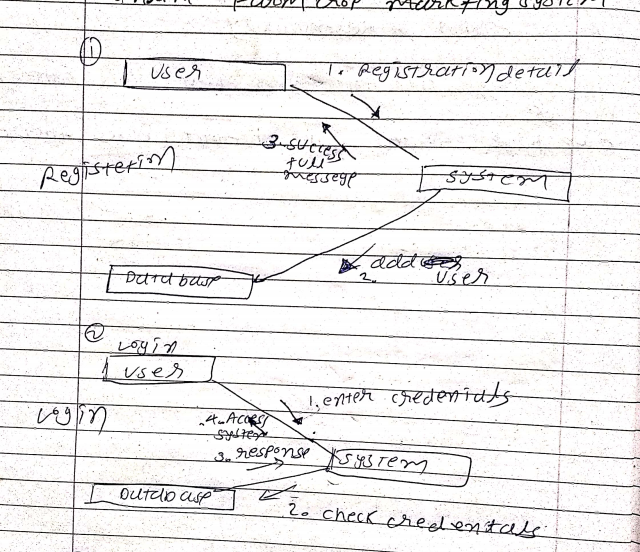 Crop Marketing System
①
User
1. Registration detail
3. success
full
messege
Registerim
System
2. add User
Database
②
Login
User
1. enter credentials
Login
4. Access
system
3. response
System
Database
2. check credentials